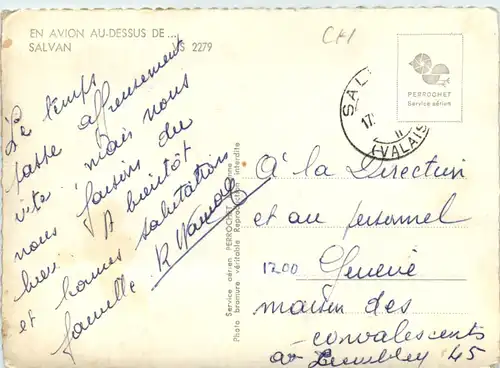 EN AVION AU-DESSUS DE...
SALVAN S 2279
CH
PERROCHET
Service aérien
SAL
17
II
(VALAIS
Le temps
passe affreusement
vite, mais nous
nous faisons du
bien. A bientôt
et bonnes salutations
famille
Service aérien PERROCHET
Photo bromure véritable Reproduction interdite
à la Direction
et au personnel
1200 Genève
maison des
convalescents
45